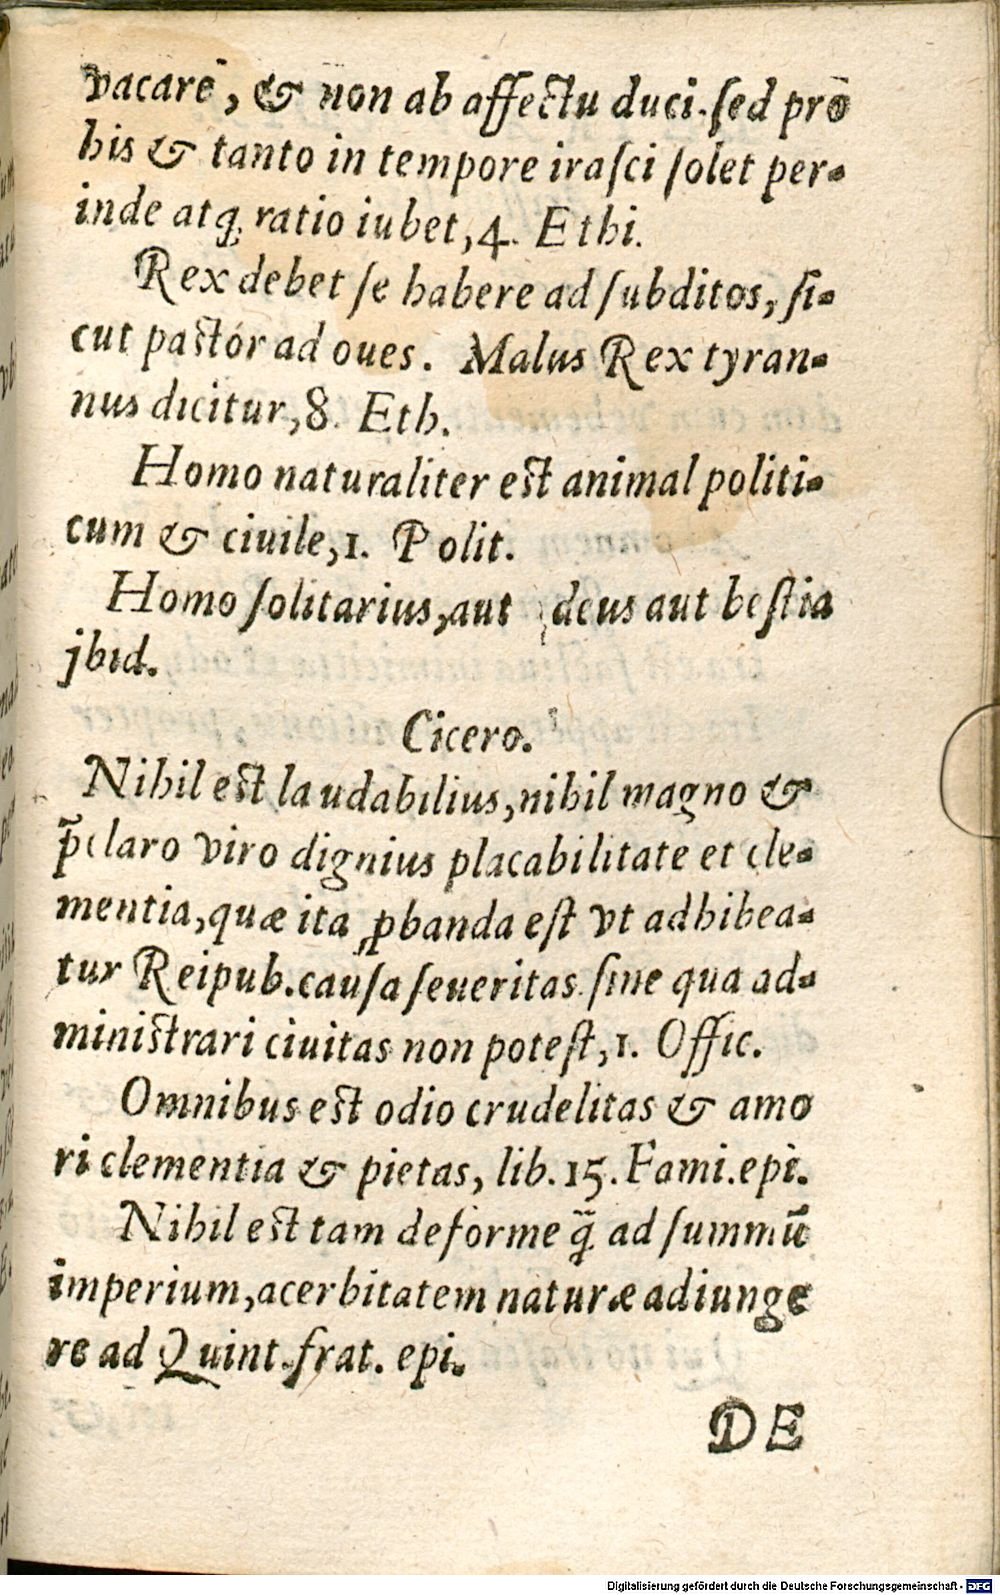 vacare, & non ab affectu duci. ſed pro
his & tanto in tempore iraſci ſolet per-
inde atq; ratio iubet, 4. Ethi.
Rex debet ſe habere ad ſubditos, ſi-
cut paſtor ad oues. Malus Rex tyran-
nus dicitur, 8. Eth.
Homo naturaliter eſt animal politi-
cum & ciuile, 1. Polit.
Homo ſolitarius, aut deus aut beſtia
jbid.
Cicero.
Nihil eſt laudabilius, nihil magno &
p̄claro viro dignius placabilitate et cle-
mentia, quæ ita ꝓbanda eſt vt adhibea-
tur Reipub. cauſa ſeueritas ſine qua ad-
miniſtrari ciuitas non poteſt, 1. Offic.
Omnibus eſt odio crudelitas & amo
ri clementia & pietas, lib. 15. Fami. epi.
Nihil eſt tam deforme q̄ ad ſummū
imperium, acerbitatem naturæ adiunge
re ad Quint. frat. epi.
DE
Digitalisierung gefördert durch die Deutsche Forschungsgemeinschaft - DFG